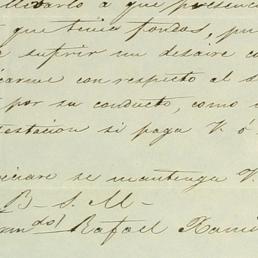 llevarlo a que presenc
que tenia fondos, pu
e sufrir un desaire co
icarme con respecto al s
por su conducto, como
testacion si paga V. ó
se mantenga V.
B. S. M.
Rafael Rami